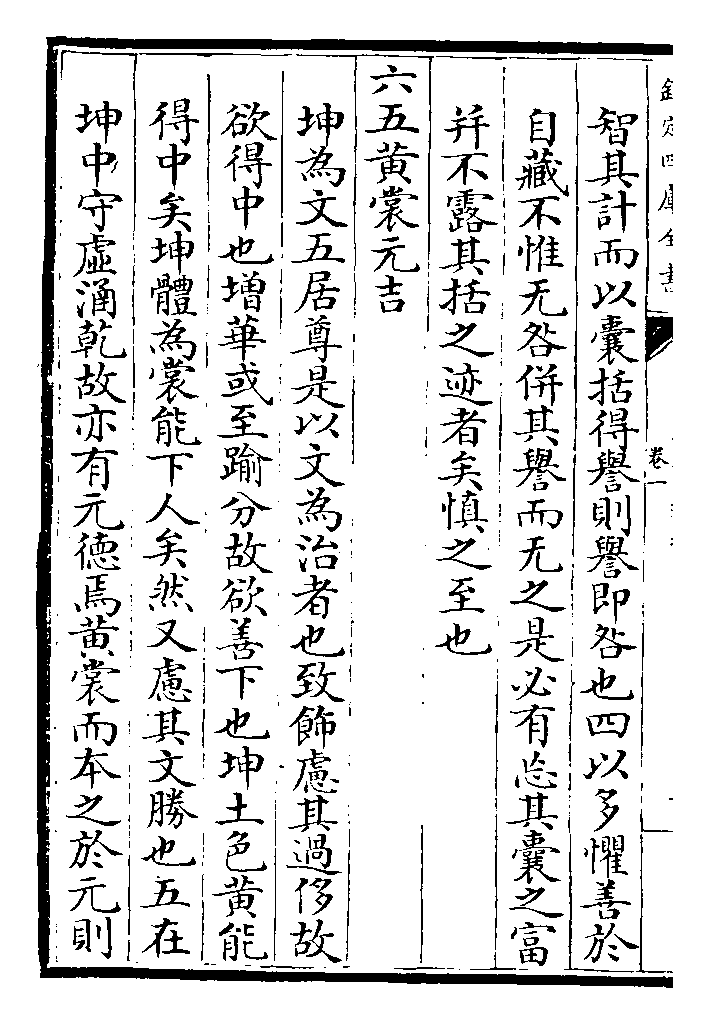 欽定四庫全書
卷一
智其計而以囊括得譽則譽即咎也四以多懼善於
自藏不惟无咎併其譽而无之是必有忘其囊之富
并不露其括之迹者矣慎之至也
六五黃裳元吉
坤為文五居尊是以文為治者也致飾慮其過侈故
欲得中也增華或至踰分故欲善下也坤土色黃能
得中矣坤體為裳能下人矣然又慮其文勝也五在
坤中守虛涵乾故亦有元德焉黃裳而本之於元則